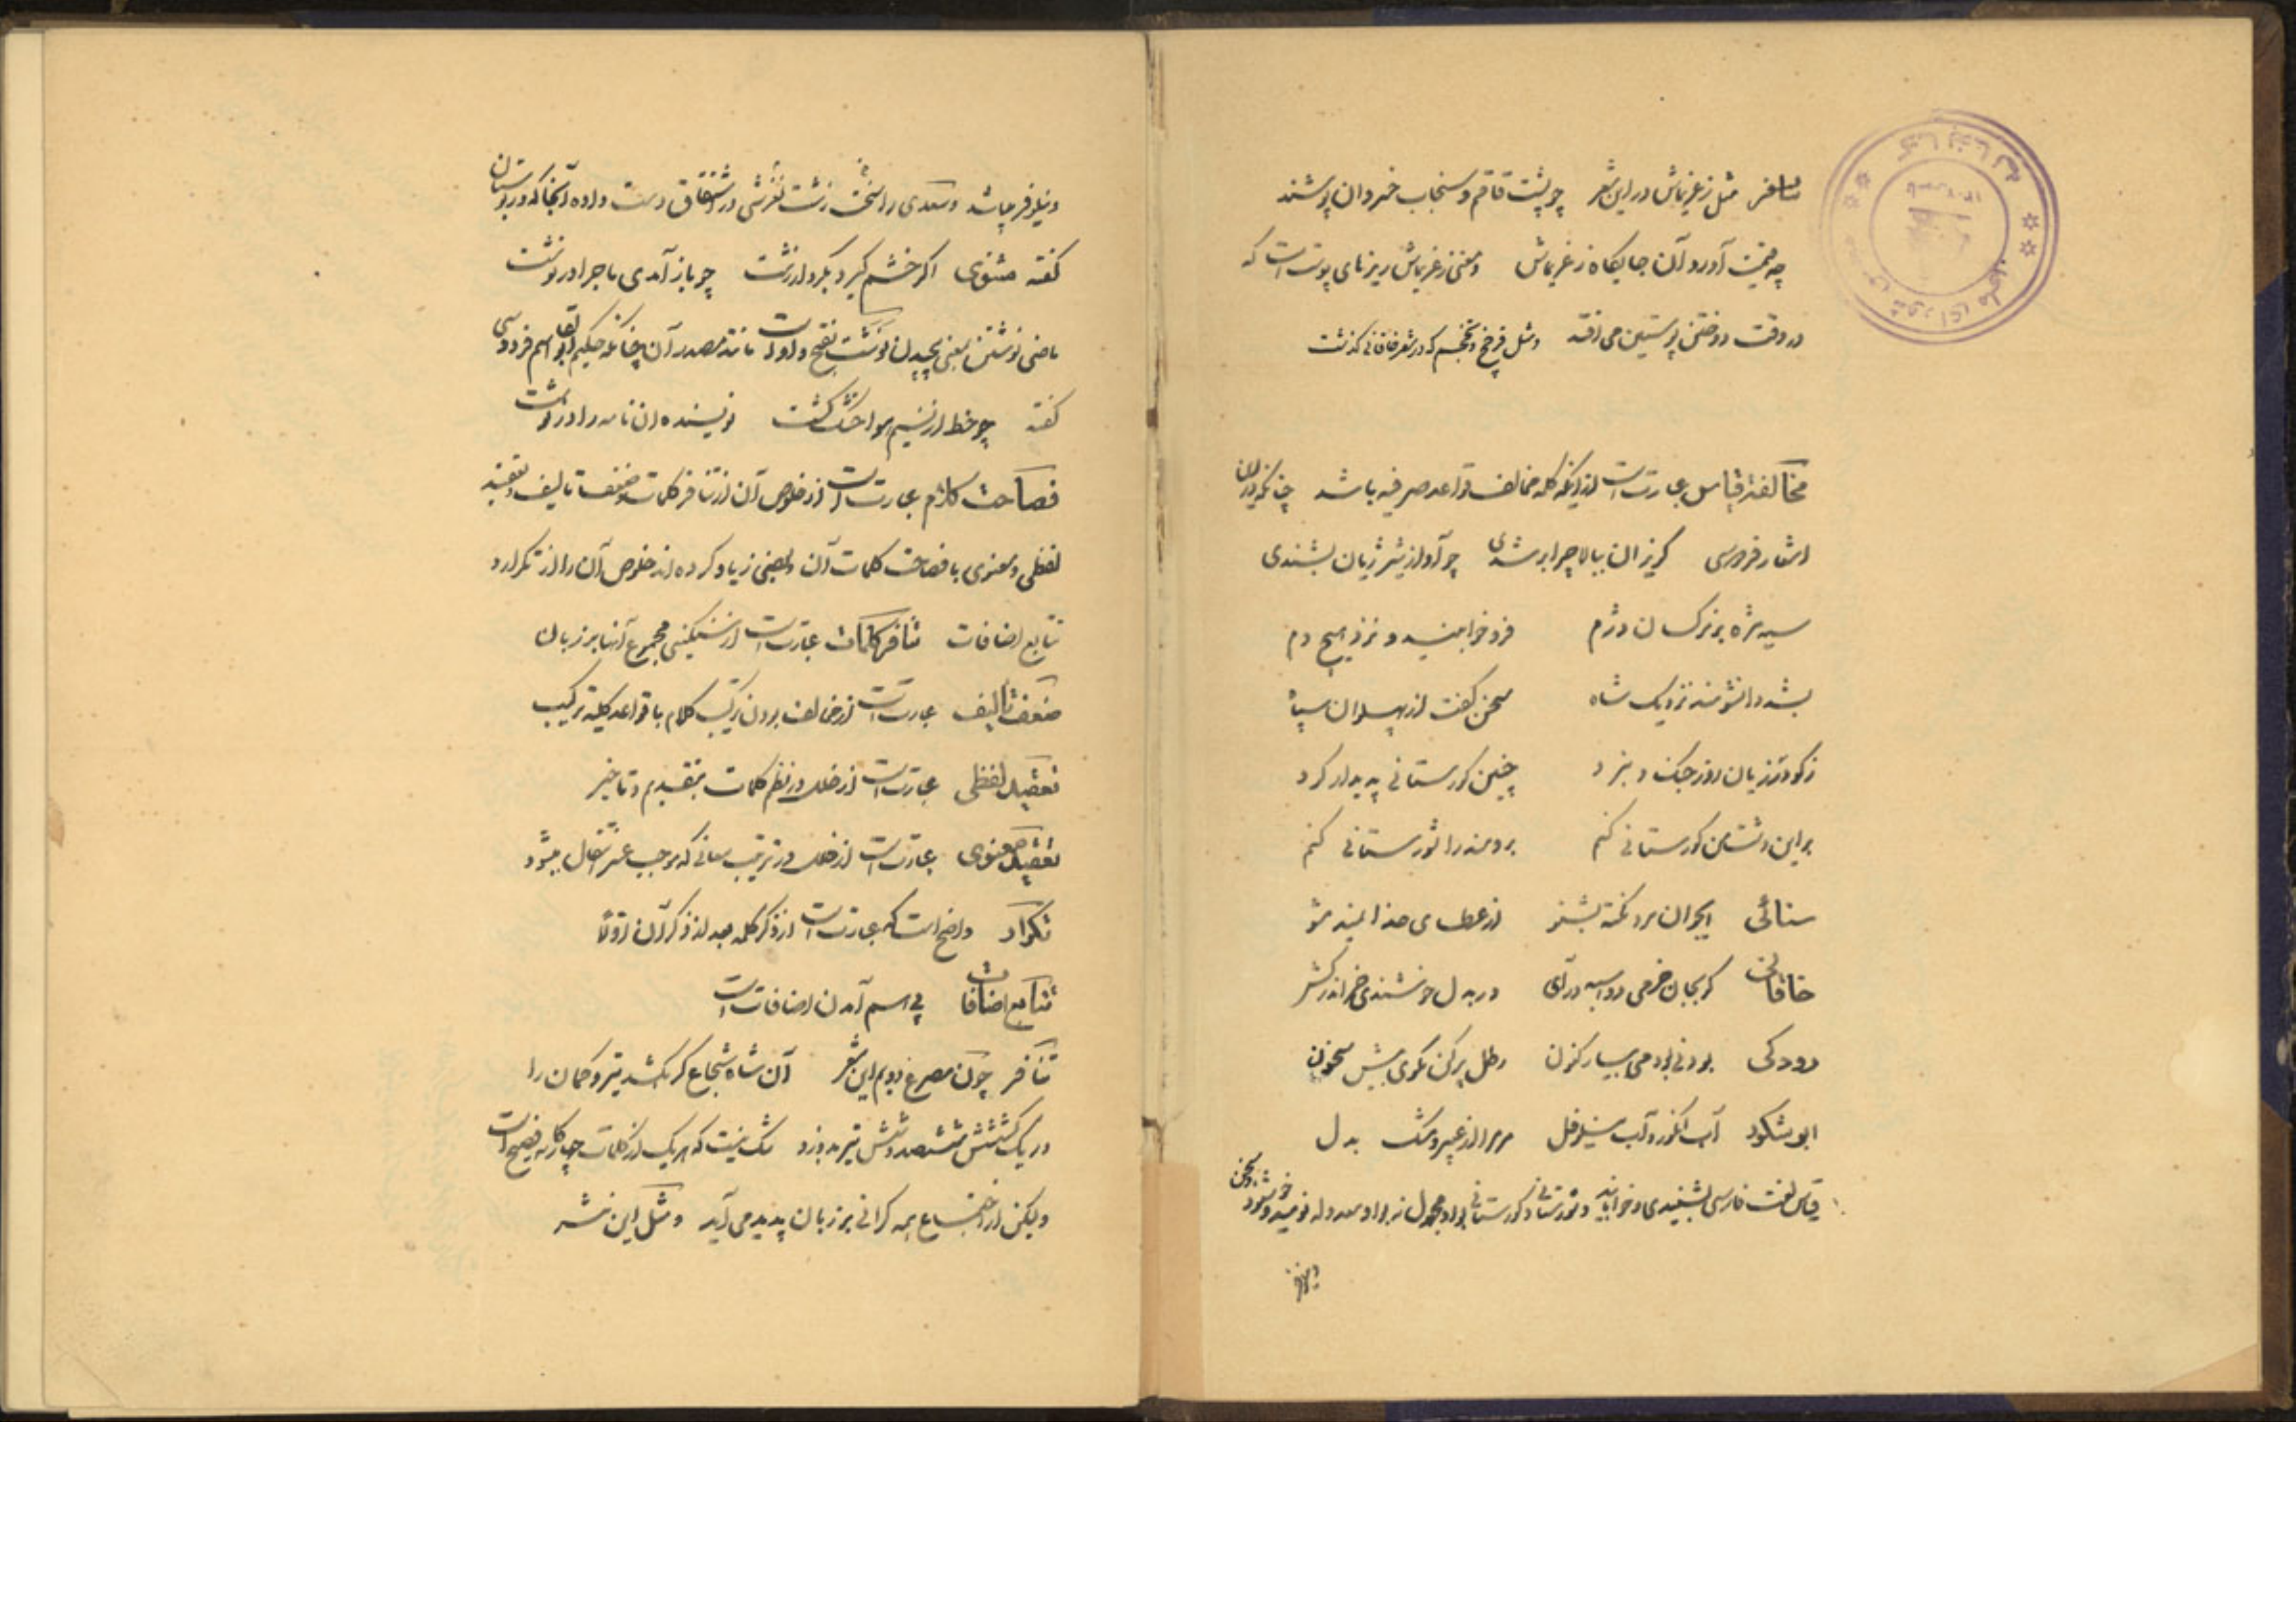 تنافر مثل زغریماش در این شعر چو پشت قاقم و سنجاب خسروان پوشند
چه قیمت آورد آن جایگاه زغریماش و معنی زغریماش ریزهای پوست است که
در وقت دوختن پوستین می افتد و مثل فرخج که در شعر خاقانی گذشت
مخالفة قیاس عبارت است از اینکه کلمه مخالف قواعد صرفیه باشد چنانکه در این
اشعار فردوسی گریزان ببالا چرا بر شدی چو آواز شیر ژیان بشندی
سیه مژه بر نرگسان دژم فرو خوابنید و نزد هیچ دم
بشد دانشومند نزدیک شاه سخن گفت از پهلوان سپاه
ز گودرزیان روز جنگ و نبرد چنین کورستانی پدیدار کرد
بر این دشت من کورستانی کنم برومند را شورستانی کنم
سنائی ایجوان مرد نکته بشنو از عطای خدا نمید مشو
خاقانی گر بجان خرمی دو اسبه درآی ور بدل خوشندی خر اندر کش
رودکی بودنی بود می بیار کنون رطل پر کن مگوی بیش سخون
ابو شکور آب انگور و آب نیلوفل مر مرا از عبیر و مشک بدل
قیاس لغت فارسی بشنیدی و خوابانید و شورستانی و کورستانی
ونیلوفر میباشد و سعدی را سخت زشت لغزشی در اشتقاق دست داده آنجا که در بوستان
گفته مثنوی اگر خشم گیرد بکردار زشت چو باز آمدی ماجرا در نوشت
ماضی نوشتن بمعنی پیچیدن نوشت بفتح واو است مانند مصدر آن چنانکه حکیم ابوالقاسم فردوسی
گفته چو خط از نسیم هوا خشک گشت نویسنده آن نامه را در نوشت
فصاحت کلام عبارت است از خلوص آن از تنافر کلمات و ضعف تالیف و تعقید
لفظی و معنوی با فصاحت کلمات آن و بعضی زیاد کرده اند خلوص آن را از تکرار و
تتابع اضافات تنافر کلمات عبارت است از سنگینی مجموع آنها بر زبان
ضعف تألیف عبارت است از مخالف بودن ترکیب کلام با قواعد کلیه ترکیب
تعقید لفظی عبارت است از خلل در نظم کلمات بتقدیم و تاخیر
تعقید معنوی عبارت است از خلل در ترتیب معانی که موجب عسر انتقال میشود
تکرار واضح است که عبارت است از ذکر کلمه بعد از ذکر آن اولاً
تتابع اضافات پی اسم آمدن اضافات است
تنافر چون مصرع دویم این شعر آن شاه شجاع گر بکشد تیر و کمان را
در یک کشش ششصد و شش تیر بدوزد شک نیست که هر یک از کلمات چهارگانه فصیح است
ولیکن از اجتماع همه گرانی بر زبان پدید می آید و مثل این نثر